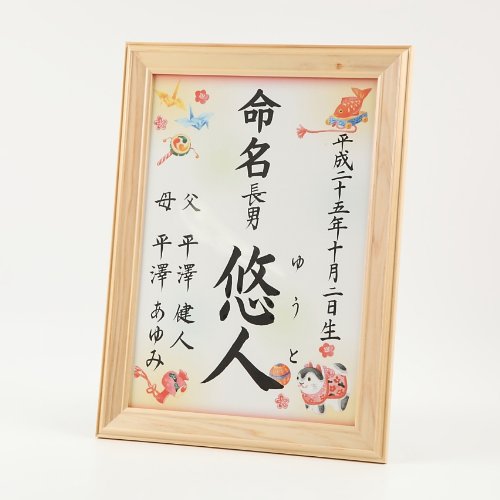 平成二十五年十月二日生
命名
長男
悠人
ゆうと
父 平澤 健人
母 平澤 あゆみ